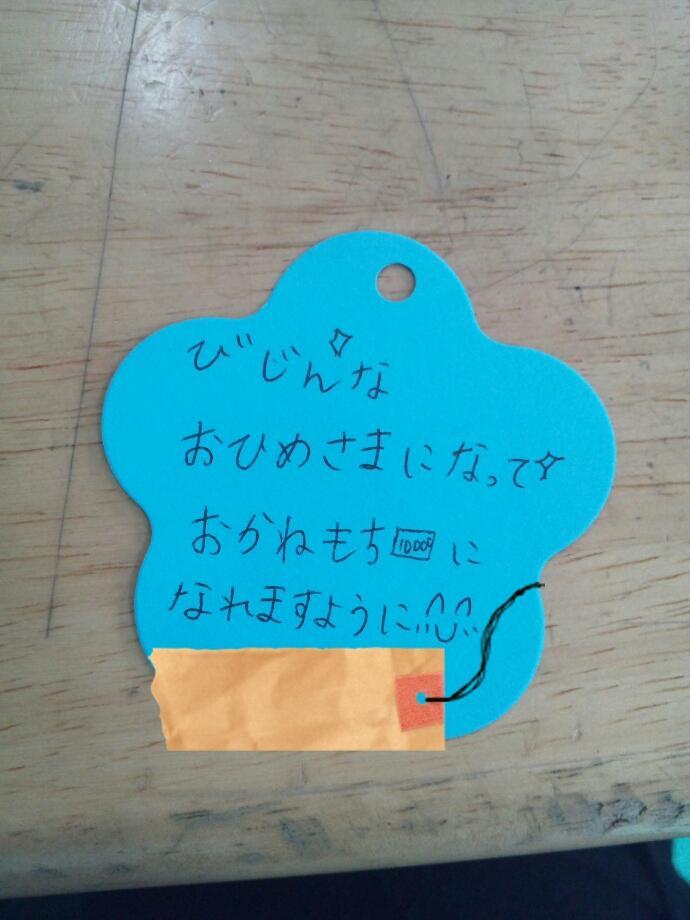 びじんな
おひめさまになって
おかねもち10000に
なれますように